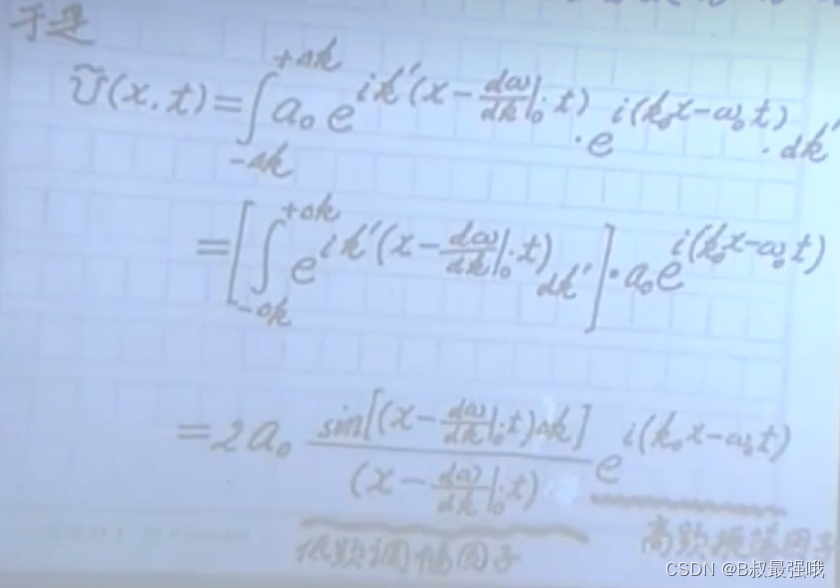 于是
Ũ(x,t)=∫_{-Δk}^{+Δk} a₀ e^{ik'(x-\frac{dω}{dk}|₀·t)}·e^{i(k₀x-ω₀t)}·dk'
=[∫_{-Δk}^{+Δk} e^{ik'(x-\frac{dω}{dk}|₀·t)} dk']·a₀e^{i(k₀x-ω₀t)}
=2a₀ \frac{sin[(x-\frac{dω}{dk}|₀·t)Δk]}{(x-\frac{dω}{dk}|₀·t)} e^{i(k₀x-ω₀t)}
低频调幅因子 高频振荡因子
CSDN @B叔最强哦